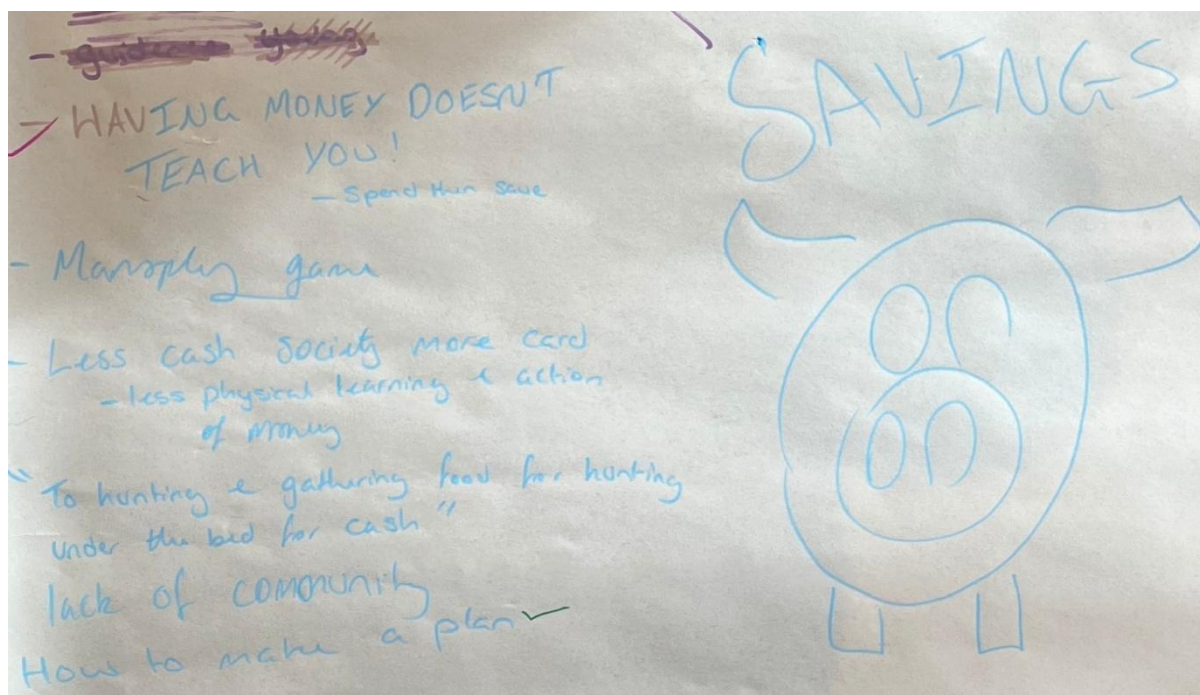 - guidance young
- HAVING MONEY DOESN'T
TEACH YOU!
- Spend than save
- Monoply game
- Less cash society more card
- less physical learning & action
of money
"To hunting & gathering food for hunting
under the bed for cash"
lack of community
How to make a plan ✓
SAVINGS